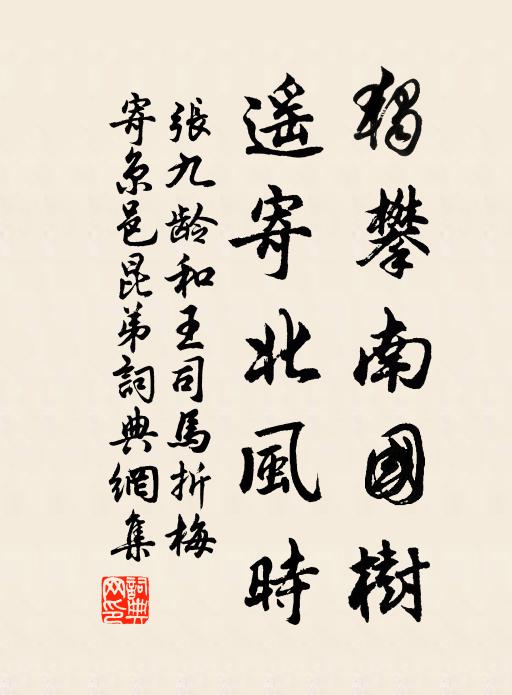 獨攀南國樹
遥寄北風時
張九齡和王司馬折梅
寄京邑昆弟詞典網集
詞典
网印